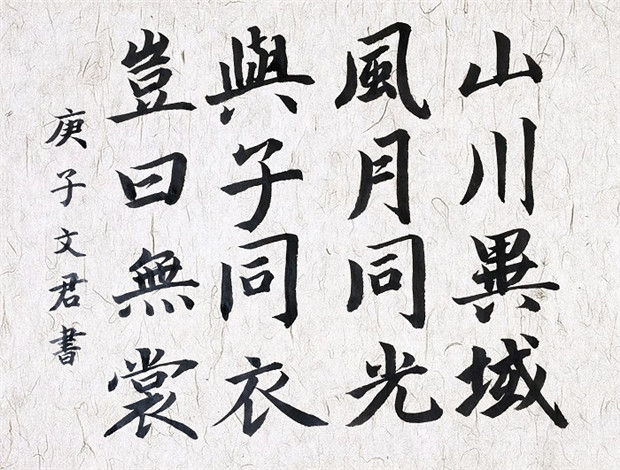 山川異域
風月同光
與子同衣
豈曰無裳
庚子文君書